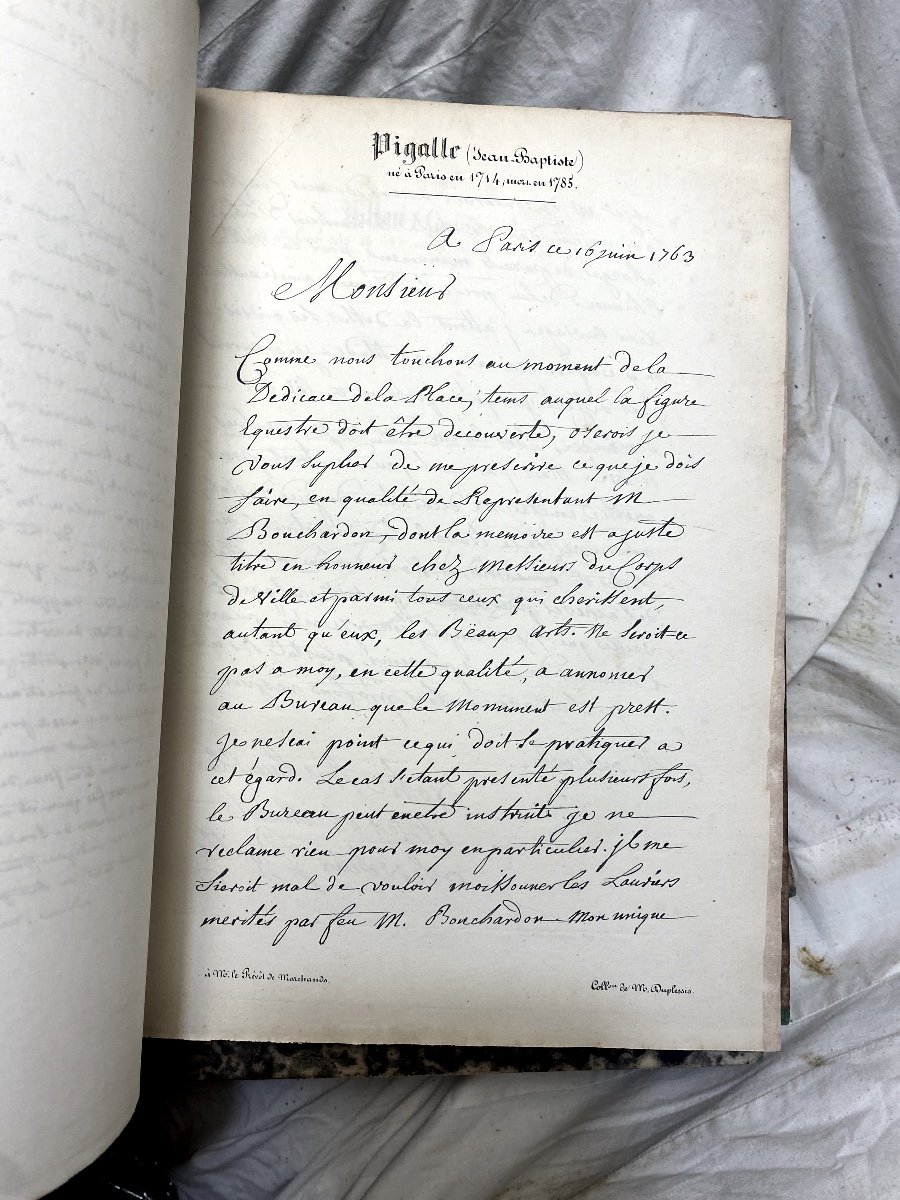 Pigalle (Jean-Baptiste)
né à Paris en 1714, mort en 1785.
A Paris ce 16 juin 1763
Monsieur
Comme nous touchons au moment de la
Dedicace de la Place, tems auquel la figure
Equestre doit être decouverte, oserois je
vous suplier de me prescrire ce que je dois
faire, en qualité de Representant M
Bouchardon, dont la memoire est a juste
titre en honneur chez Messieurs du Corps
de Ville et parmi tous ceux qui cherissent,
autant qu'eux, les Bëaux arts. Ne seroit ce
pas a moy, en cette qualité, a annoncer
au Bureau que le Monument est prest.
Je ne scai point ce qui doit se pratiquer a
cet égard. Le cas s'etant presenté plusieurs fois,
le Bureau peut en etre instruit je ne
reclame rien pour moy en particulier. jl me
sieroit mal de vouloir moissonner les Lauriers
merités par feu M. Bouchardon Mon unique
à Mr. le Prévôt de Marchands.
Collon de Mr. Duplessis.